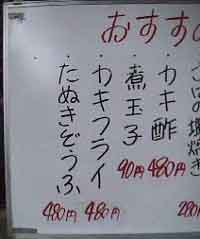 おすす
さばの塩焼き
280円
・カキ酢
480円
・煮玉子
90円
・カキフライ
480円
・たぬきどうふ
480円